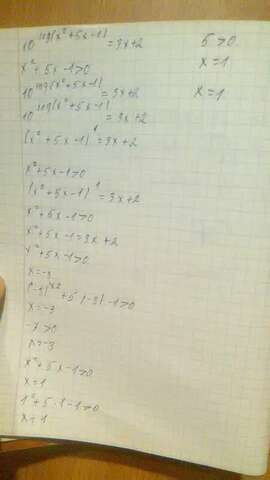 10^lg(x²+5x-1) = 3x+2
x²+5x-1>0
10^lg(x²+5x-1) = 3x+2
10^lg(x²+5x-1) = 3x+2
(x²+5x-1)¹ = 3x+2
x²+5x-1>0
(x²+5x-1)¹ = 3x+2
x²+5x-1>0
x²+5x-1=3x+2
x²+5x-1>0
x=-3
+5(-3)-1>0
x=-3
-7>0
x=-3
x²+5x-1>0
x=1
1²+5·1-1>0
x=1
5>0
x=1
x=1